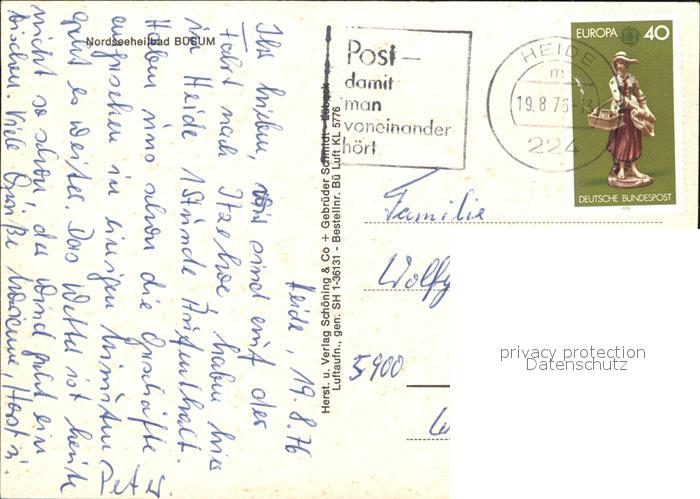 Nordseeheilbad BÜSUM
Heide, 19.8.76
Ihr Lieben, Wir sind auf der
Fahrt nach Itzehoe, haben hier
in Heide 1 Stunde Aufenthalt.
Haben uns schon die Geschäfte
angesehen in einigen Minuten
geht es weiter. Das Wetter ist heute
nicht so schön, der Wind geht ein
bischen. Viele Grüße Horst u.
Peter
Herst. u. Verlag Schöning & Co + Gebrüder Schmidt - Lübeck
Luftaufn., gen. SH 1-36131 - Bestellnr. Bü Luft KL 5776
Post –
damit
man
voneinander
hört
HEIDE
m
19.8.76-
224
EUROPA 40
DEUTSCHE BUNDESPOST
Familie
Wolfg
5900
privacy protection
Datenschutz